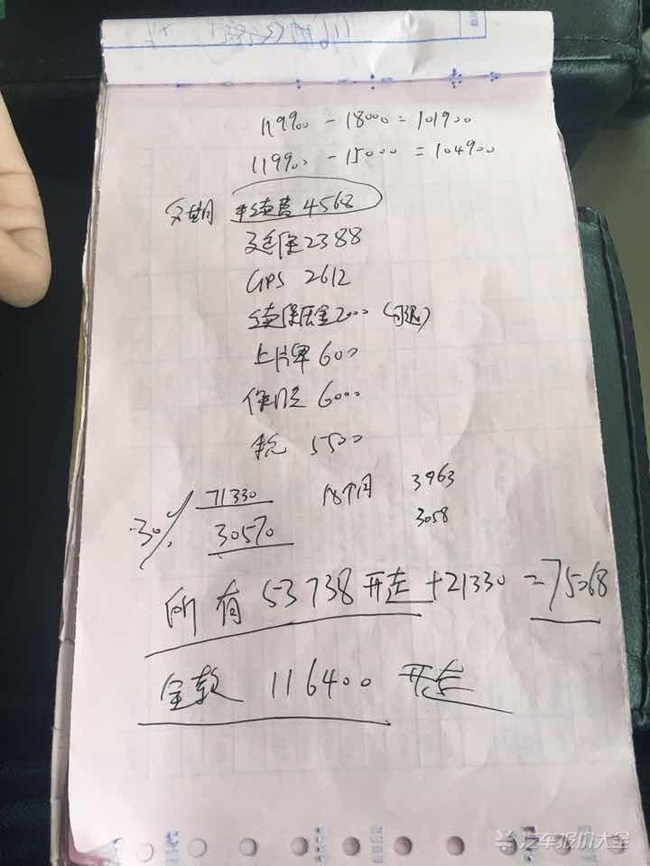 119900 - 18000 = 101900
119900 - 15000 = 104900
分期 手续费 4568
延保 2388
GPS 2612
续保压金 2000 (可退)
上片单 600
保险 6000
税 5500
30% 71330 18个月 3963
30570 3058
所有 53738 开走 +21330 = 75068
全款 116400 开走
汽车报价大全